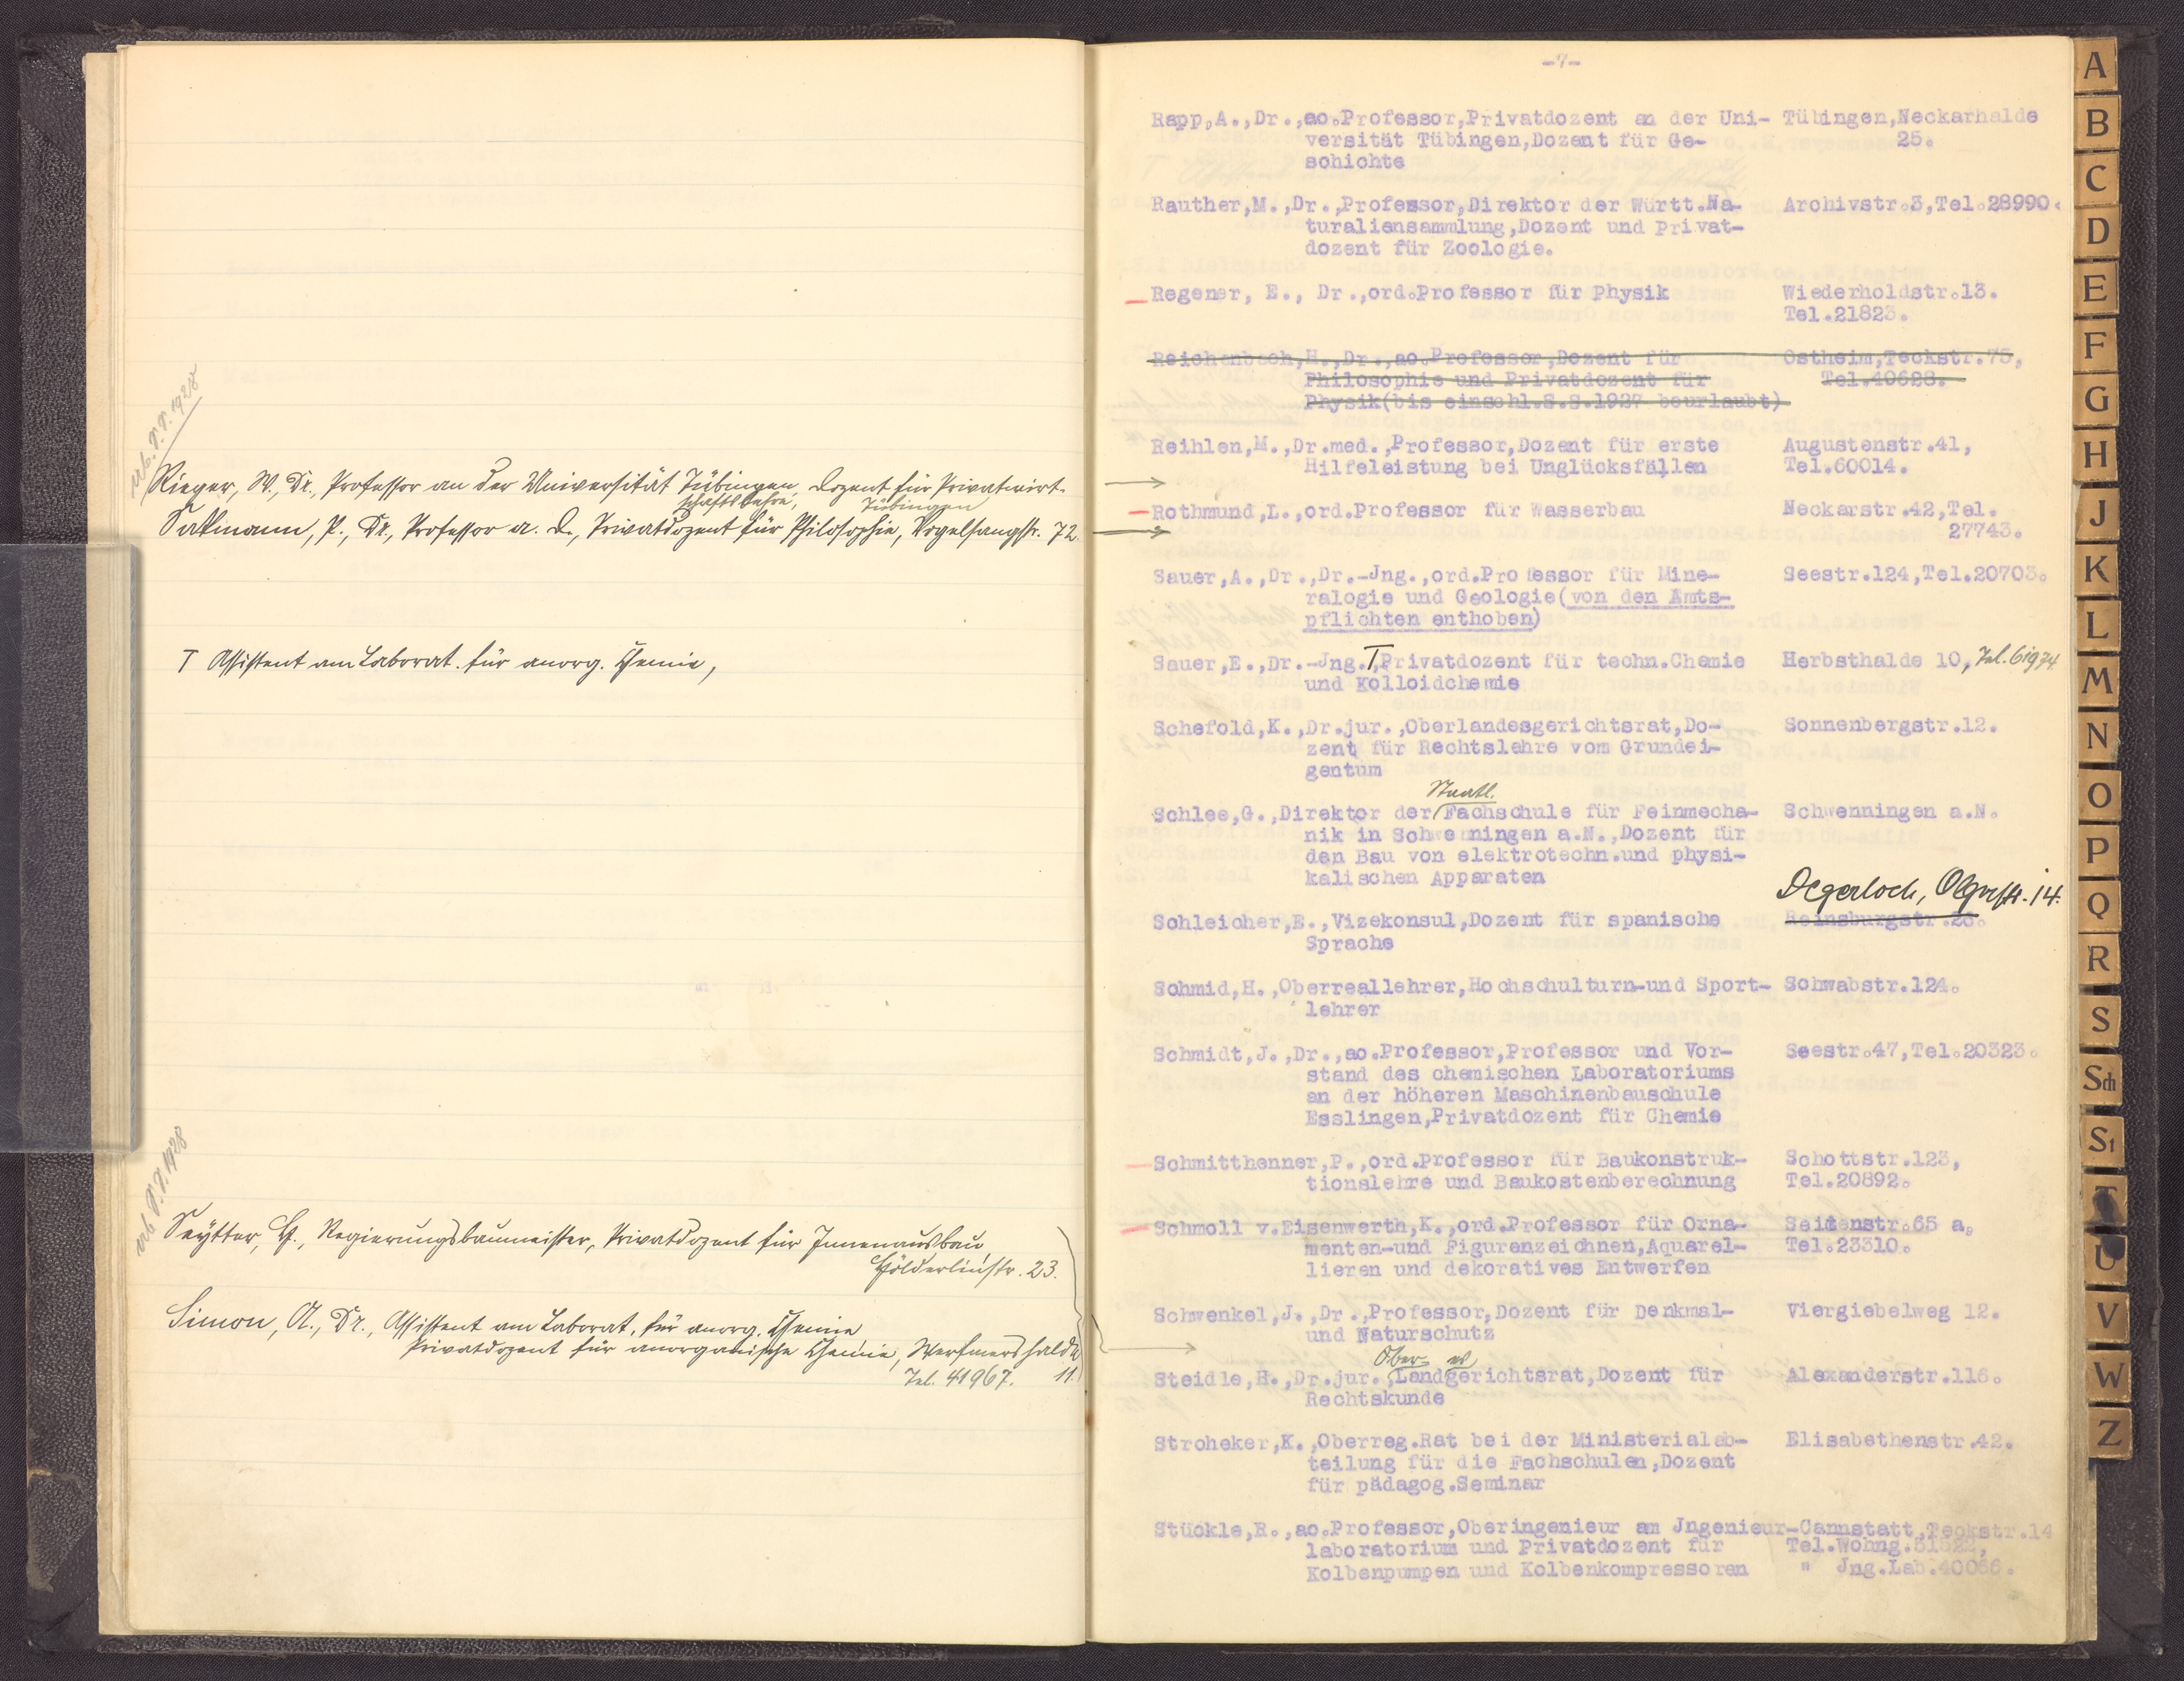 ab. S.S. 1928
Rieger, W., Dr., Professor an der Universität Tübingen, Dozent für Privatwirt-
schaftslehre, Tübingen
Sakmann, P., Dr., Professor a. D., Privatdozent für Philosophie, Vogelsangstr. 72.
T Assistent am Laborat. für anorg. Chemie,
ab S.S. 1928
Seytter, H., Regierungsbaumeister, Privatdozent für Innenausbau,
Hölderlinstr. 23.
Simon, A., Dr., Assistent am Laborat. für anorg. Chemie,
Privatdozent für anorganische Chemie, Werfmershalde
Tel. 41967. 11.
-7-
Rapp,A.,Dr.,ao.Professor,Privatdozent an der Uni- Tübingen,Neckarhalde
versität Tübingen,Dozent für Ge- 25.
schichte
Rauther,M.,Dr.,Professor,Direktor der Württ.Na- Archivstr.3,Tel.28990.
turaliensammlung,Dozent und Privat-
dozent für Zoologie.
Regener, E., Dr.,ord.Professor für Physik Wiederholdstr.13.
Tel.21823.
Reichenbach,H.,Dr.,ao.Professor,Dozent für Ostheim,Teckstr.75,
Philosophie und Privatdozent für Tel.40628.
Physik(bis einschl.S.S.1927 beurlaubt)
Reihlen,M.,Dr.med.,Professor,Dozent für erste Augustenstr.41,
Hilfeleistung bei Unglücksfällen Tel.60014.
Rothmund,L.,ord.Professor für Wasserbau Neckarstr.42,Tel.
27743.
Sauer,A.,Dr.,Dr.-Jng.,ord.Professor für Mine- Seestr.124,Tel.20703.
ralogie und Geologie(von den Amts-
pflichten enthoben)
Sauer,E.,Dr.-Jng.T,Privatdozent für techn.Chemie Herbsthalde 10, Tel. 61974.
und Kolloidchemie
Schefold,K.,Dr.jur.,Oberlandesgerichtsrat,Do- Sonnenbergstr.12.
zent für Rechtslehre vom Grundei-
gentum
Staatl.
Schlee,G.,Direktor der Fachschule für Feinmecha- Schwenningen a.N.
nik in Schwenningen a.N.,Dozent für
den Bau von elektrotechn.und physi-
kalischen Apparaten
Degerloch, Olgastr. 14.
Schleicher,E.,Vizekonsul,Dozent für spanische Reinsburgstr.26.
Sprache
Schmid,H.,Oberreallehrer,Hochschulturn-und Sport- Schwabstr.124.
lehrer
Schmidt,J.,Dr.,ao.Professor,Professor und Vor- Seestr.47,Tel.20323.
stand des chemischen Laboratoriums
an der höheren Maschinenbauschule
Esslingen,Privatdozent für Chemie
Schmitthenner,P.,ord.Professor für Baukonstruk- Schottstr.123,
tionslehre und Baukostenberechnung Tel.20892.
Schmoll v.Eisenwerth,K.,ord.Professor für Orna- Seidenstr.65 a,
menten-und Figurenzeichnen,Aquarel- Tel.23310.
lieren und dekoratives Entwerfen
Schwenkel,J.,Dr.,Professor,Dozent für Denkmal- Viergiebelweg 12.
und Naturschutz
Ober es
Steidle,H.,Dr.jur.,Landgerichtsrat,Dozent für Alexanderstr.116.
Rechtskunde
Stroheker,K.,Oberreg.Rat bei der Ministerialab- Elisabethenstr.42.
teilung für die Fachschulen,Dozent
für pädagog.Seminar
Stückle,R.,ao.Professor,Oberingenieur am Jngenieur-Cannstatt,Teckstr.14
laboratorium und Privatdozent für Tel.Wohng.51522,
Kolbenpumpen und Kolbenkompressoren " Jng.Lab.40066.
A
B
C
D
E
F
G
H
J
K
L
M
N
O
P
Q
R
S
Sch
St
T
U
V
W
Z